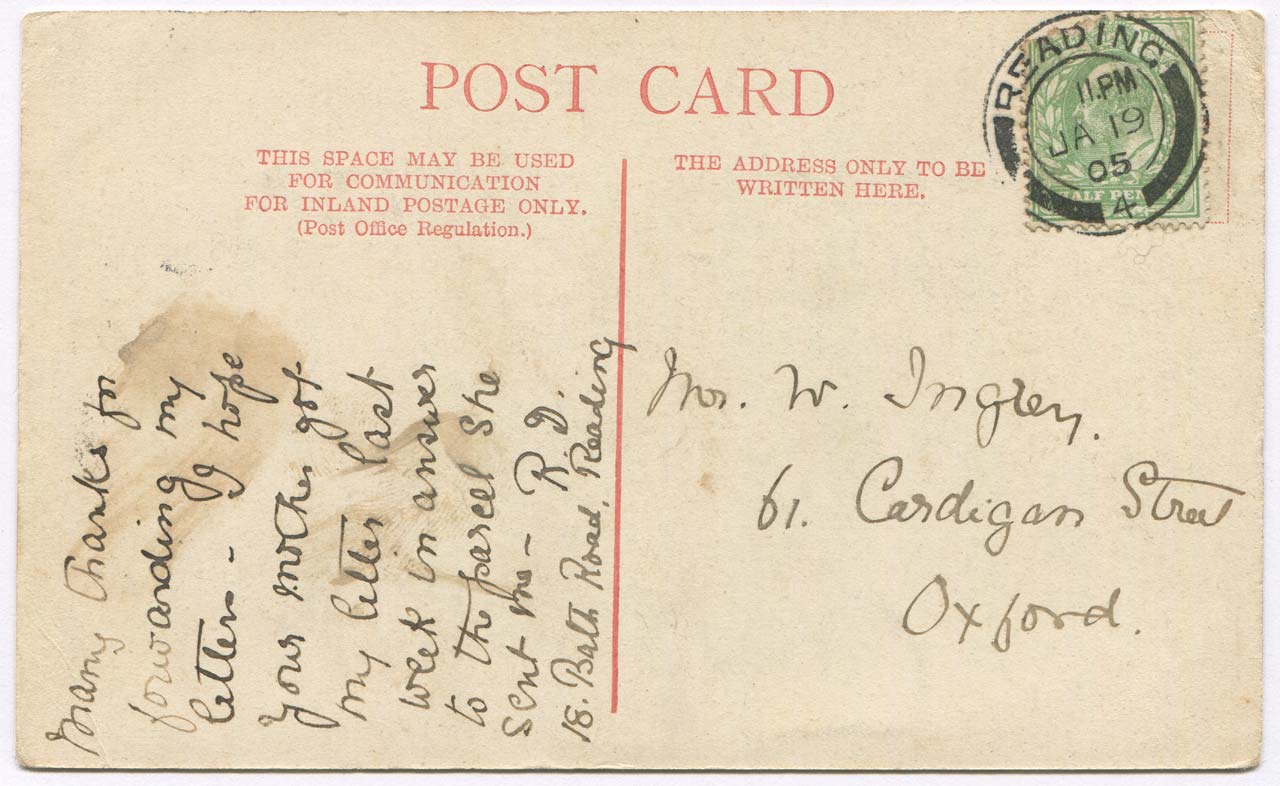 POST CARD
THIS SPACE MAY BE USED
FOR COMMUNICATION
FOR INLAND POSTAGE ONLY.
(Post Office Regulation.)
THE ADDRESS ONLY TO BE
WRITTEN HERE.
READING
11.PM
JA 19
05
4
HALF PEN
Many thanks for
forwarding my
letters - I hope
your mother got
my letter last
week in answer
to the parcel she
sent me - R. D.
18. Bath Road, Reading
Mr. W. Ingrey.
61. Cardigan Street
Oxford.